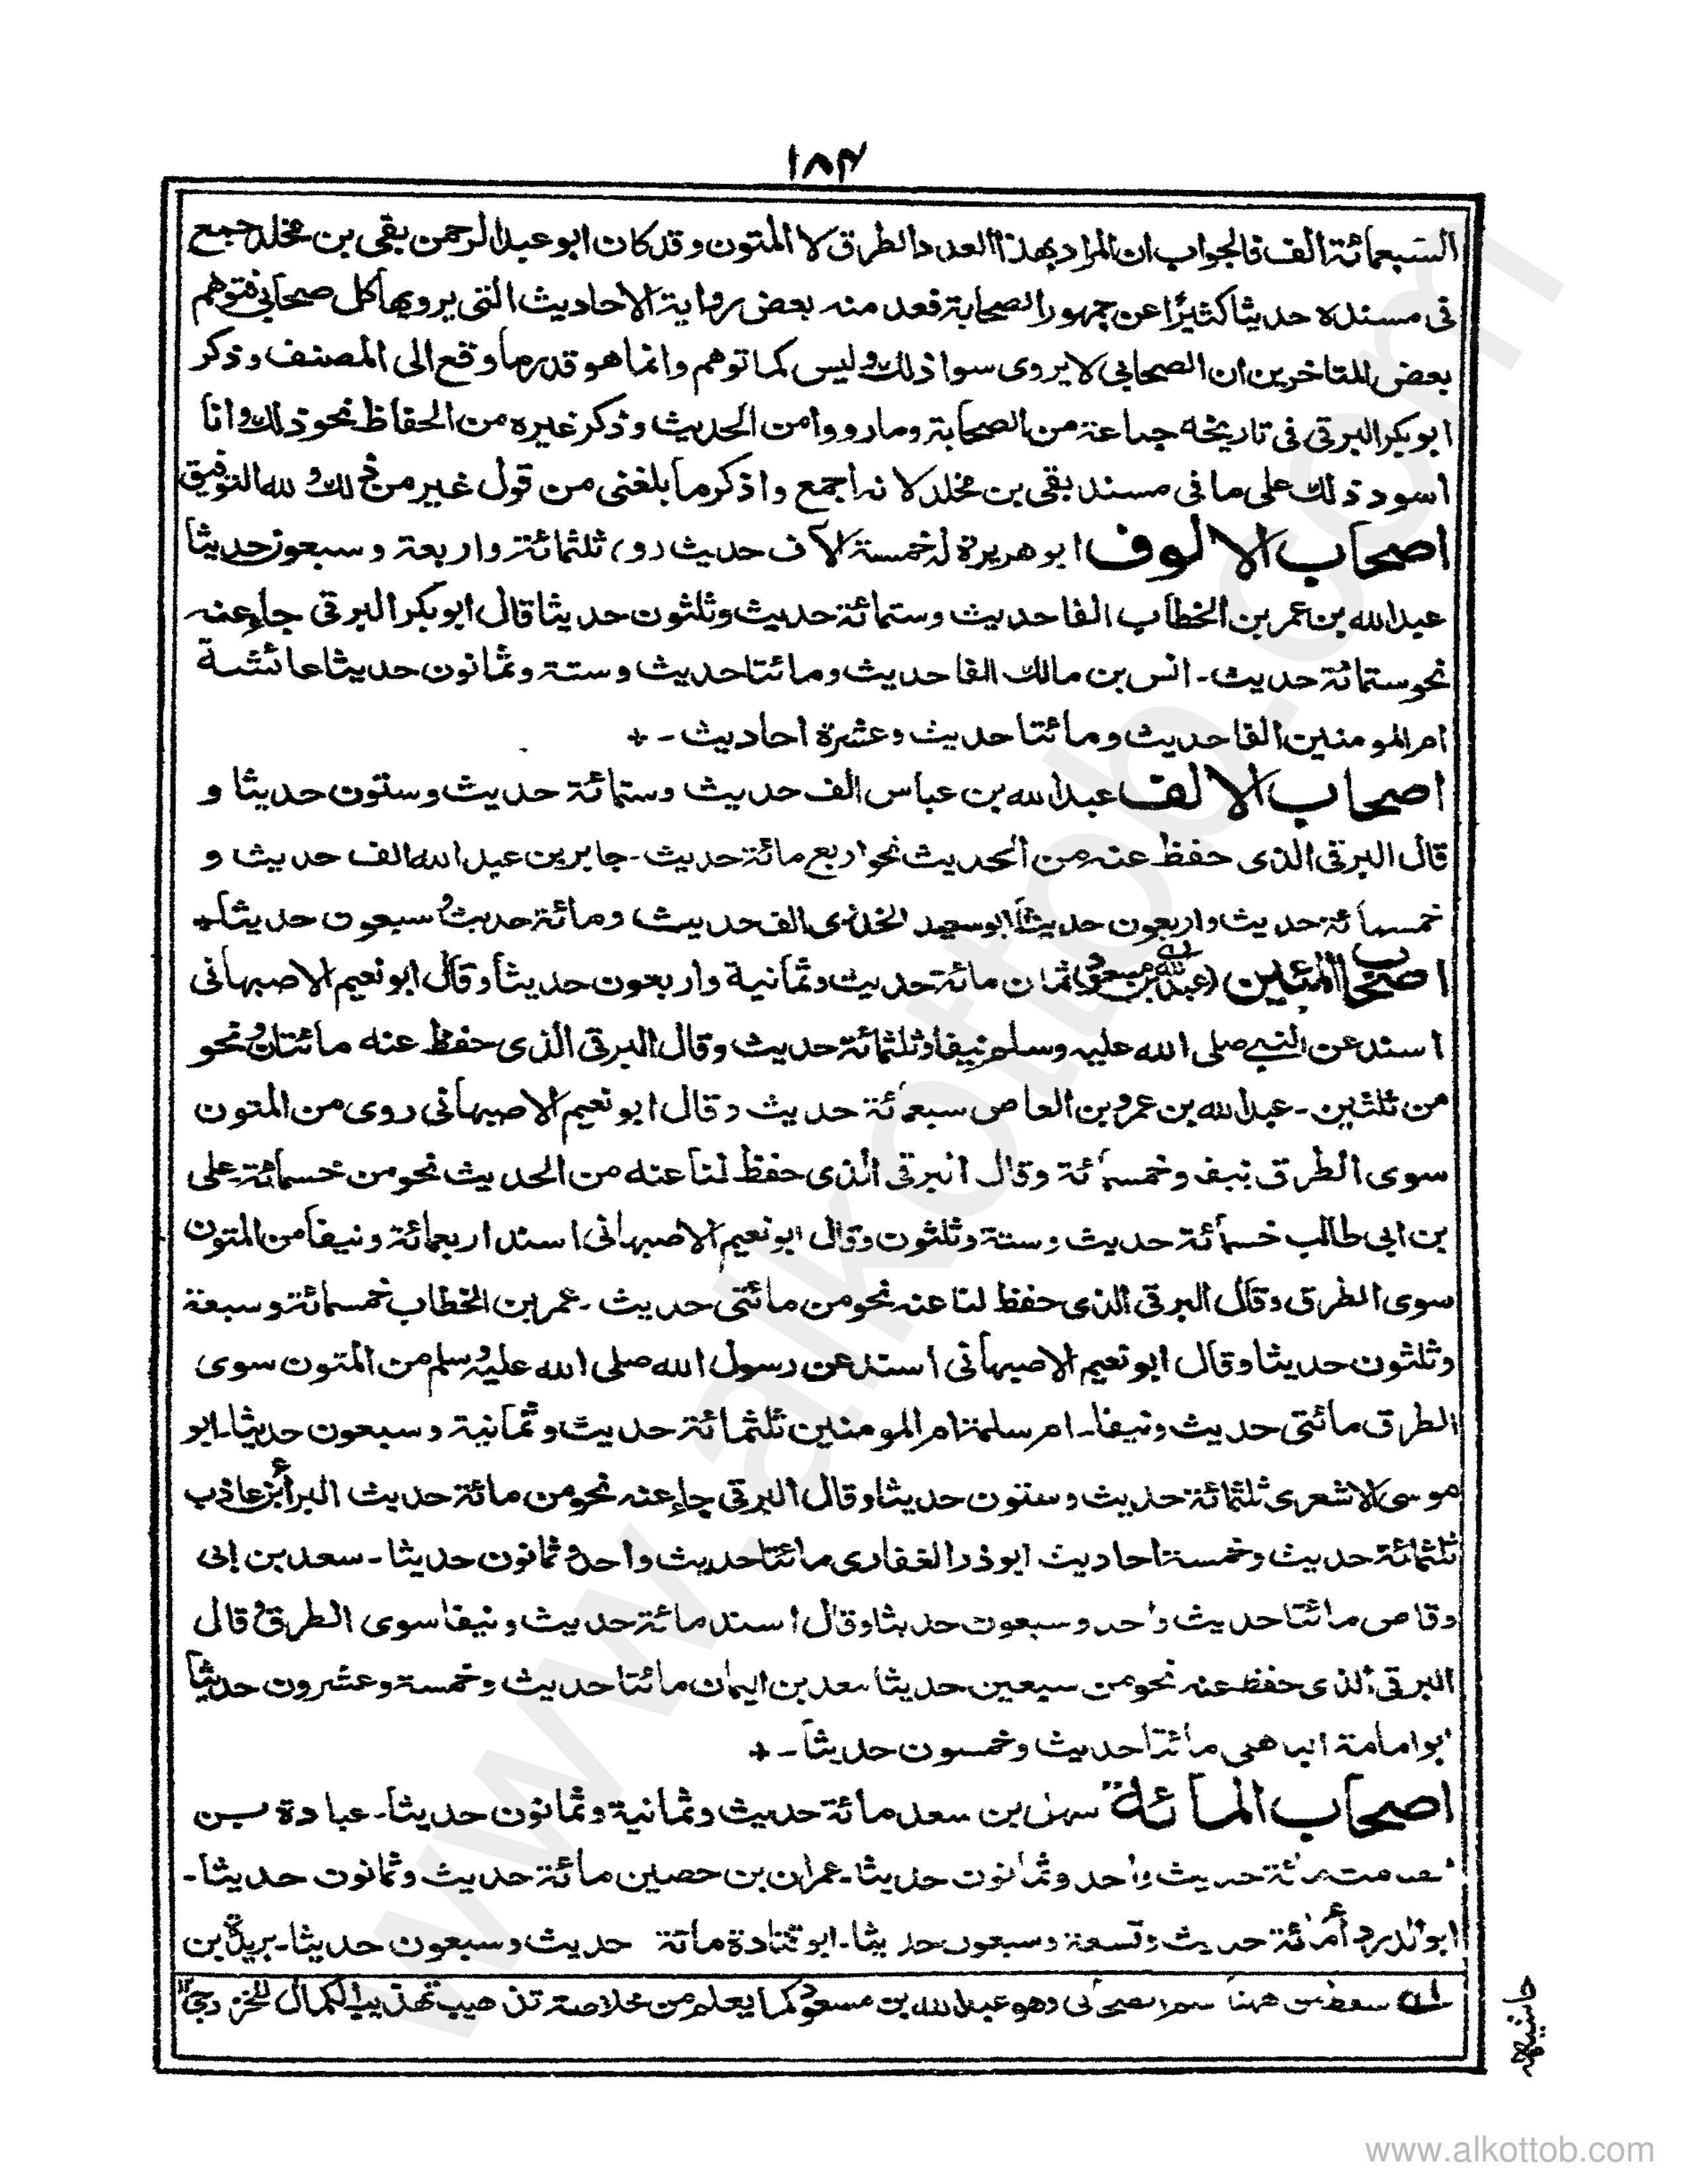 ١٨۴
السبعمائة الف فالجواب ان المراد بهذا العدد الطرق لا المتون وقد كان ابو عبد الرحمن بقى بن مخلد جمع
فى مسنده حديثا كثيرًا عن جمهور الصحابة فعد منه بعض رواية الاحاديث التى يرويها كل صحابى فتوهم
بعض المتاخرين ان الصحابى لا يروى سوا ذلك وليس كما توهم وانما هو قدر ما وقع الى المصنف وذكر
ابو بكر البرقى فى تاريخه جماعة من الصحابة وما رووا من الحديث وذكر غيره من الحفاظ نحو ذلك وانا
اسود ذلك على ما فى مسند بقى بن مخلد لانه اجمع واذكر ما بلغنى من قول غير من ذلك ولله التوفيق
اصحاب الالوف ابو هريرة له خمسة آلاف حديث (و) ثلثمائة واربعة وسبعون حديثا
عبد الله بن عمر بن الخطاب الفا حديث وستمائة حديث وثلثون حديثا قال ابو بكر البرقى جاء عنه
نحو ستمائة حديث ـ انس بن مالك الفا حديث ومائتا حديث وستة وثمانون حديثا عائشة
ام المومنين الفا حديث ومائتا حديث وعشرة احاديث ـ +
اصحاب الالف عبد الله بن عباس الف حديث وستمائة حديث وستون حديثا و
قال البرقى الذى حفظ عنه من الحديث نحو اربع مائة حديث ـ جابر بن عبد الله الف حديث و
خمسمائة حديث واربعون حديثاً ابو سعيد الخذرى الف حديث ومائة حديث وسبعون حديثاً ـ +
اصحاب المئين (عبد الله بن مسعود) له ثمان مائة حديث وثمانية واربعون حديثاً وقال ابو نعيم الاصبهانى
اسند عن النبى صلى الله عليه وسلم نيفا وثلثمائة حديث وقال البرقى الذى حفظ عنه مائتان ونحو
من ثلثين ـ عبد الله بن عمرو بن العاص سبعمائة حديث وقال ابو نعيم الاصبهانى روى من المتون
سوى الطرق نيف وخمسمائة وقال البرقى الذى حفظ لنا عنه من الحديث نحو من خمسمائة على
بن ابى طالب خسمائة حديث وستة وثلثون وقال ابو نعيم الاصبهانى اسند اربعمائة ونيفا من المتون
سوى الطرق وقال البرقى الذى حفظ لنا عنه نحو من مائتى حديث ـ عمر بن الخطاب خمسمائة وسبعة
وثلثون حديثا وقال ابو نعيم الاصبهانى اسند عن رسول الله صلى الله عليه وسلم من المتون سوى
الطرق مائتى حديث ونيفا ـ ام سلمة ام المومنين ثلثمائة حديث وثمانية وسبعون حديثا ـ ابو
موسى الاشعرى ثلثمائة حديث وستون حديثا وقال البرقى جاء عنه نحو من مائة حديث البراء بن عاذب
ثلثمائة حديث وخمسة احاديث ابو ذر الغفارى مائتا حديث واحد وثمانون حديثا ـ سعد بن ابى
وقاص مائتا حديث واحد وسبعون حديثا وقال اسند مائة حديث ونيفا سوى الطرق وقال
البرقى الذى حفظ عنه نحو من سبعين حديثا سعد بن اليمان مائتا حديث وخمسة وعشرون حديثاً
ابو امامة الباهلى مائتا حديث وخمسون حديثاً ـ +
اصحاب المائة سهل بن سعد مائة حديث وثمانية وثمانون حديثاً ـ عبادة بن
الصامت مائة حديث واحد وثمانون حديثا ـ عمران بن حصين مائة حديث وثمانون حديثا ـ
ابو الدرداء مائة حديث وتسعة وسبعون حديثا ـ ابو قتادة مائة حديث وسبعون حديثا ـ بريدة بن
سقط من ههنا اسم الصحابى وهو عبد الله بن مسعود كما يعلم من خلاصة تذهيب تهذيب الكمال للخزرجى ١٢
حاشيه
www.alkottob.com
www.alkottob.com